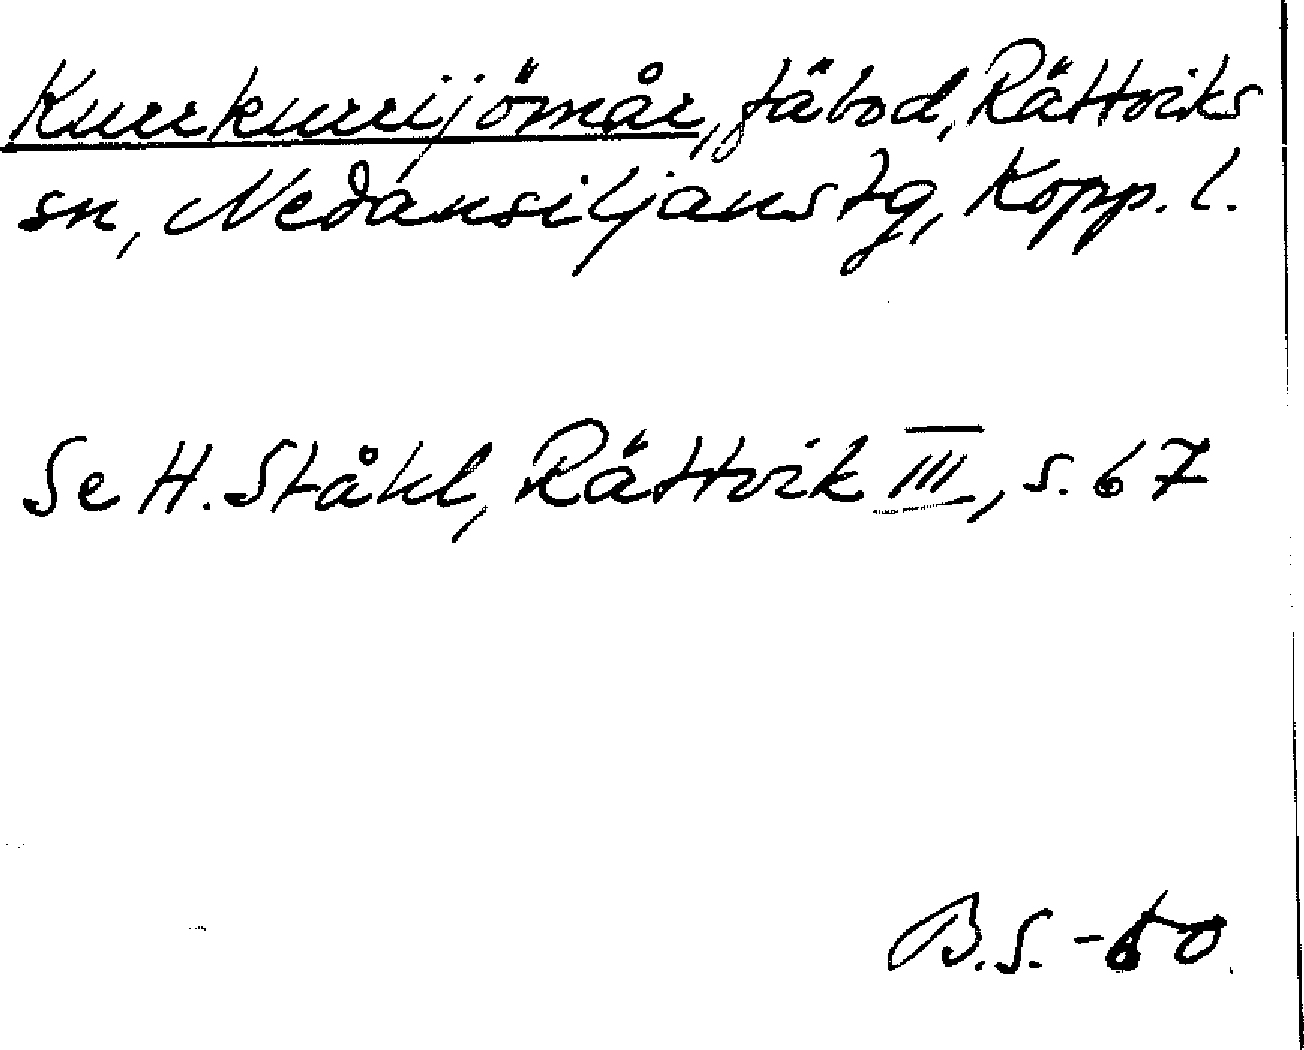 Kurrkurrijömår, fäbod, Rättviks
sn, Nedansiljans tg, Kopp. l.
Se H. Ståhl, Rättvik III, s. 67
B.S. -60